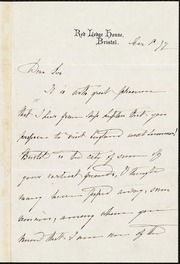 Red Lodge House,
Bristol.
Dear Sir
It is with great pleasure
that I hear from
propose to visit England next summer.
Bristol is the city of some of
your earliest friends, & though
many have passed away, some
remain; among whom you
that I am one of the